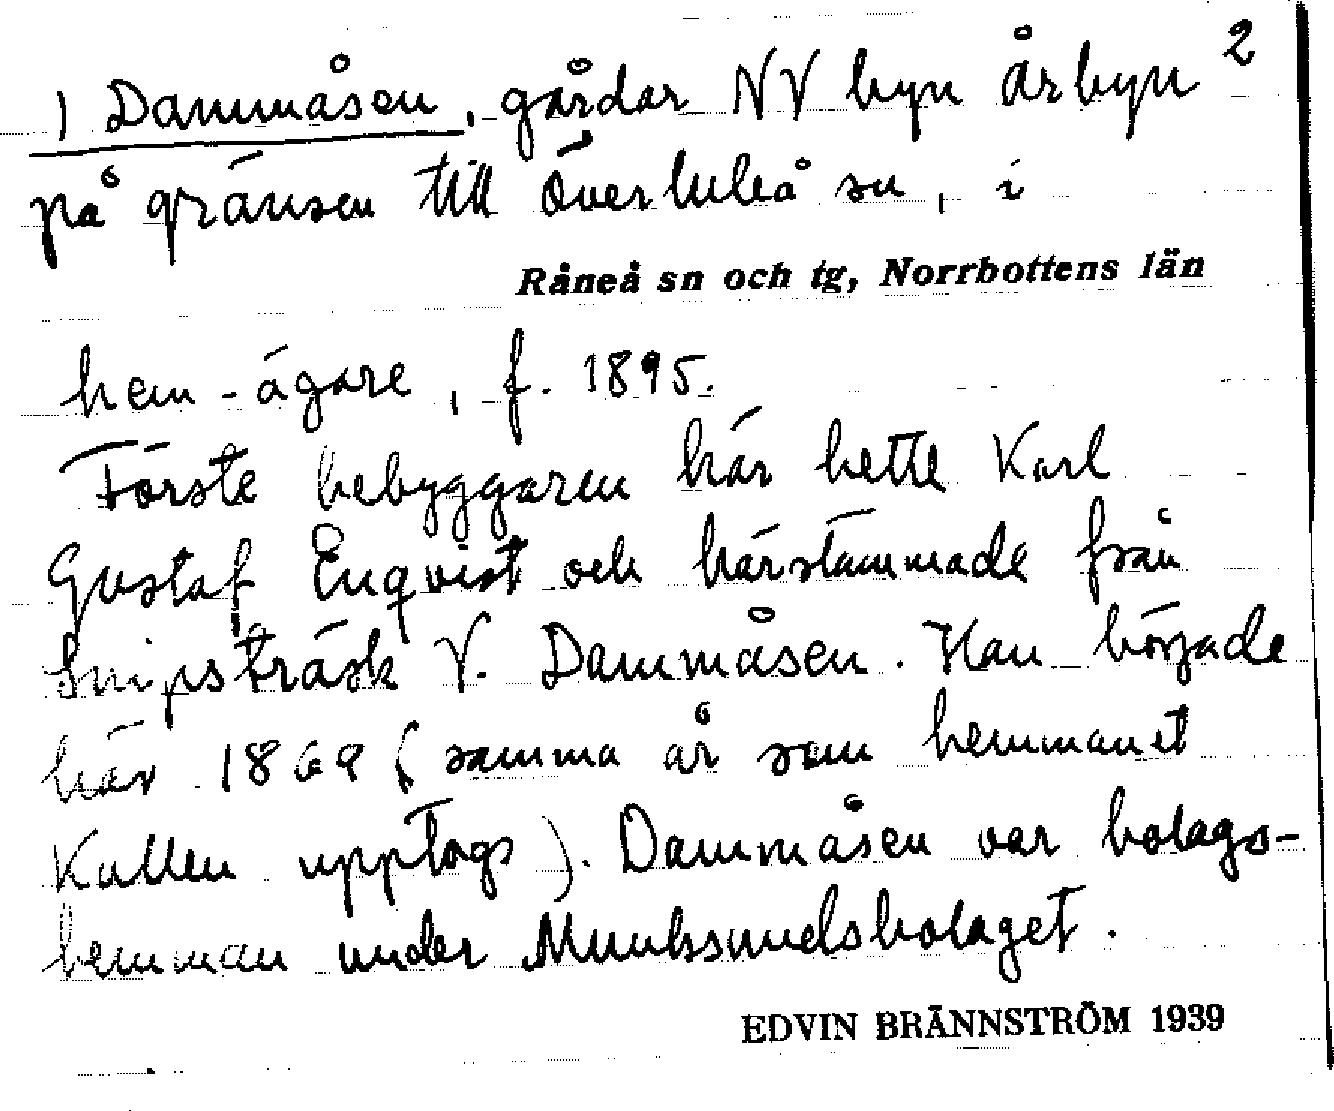 1 Dammåsen, gårdar NV byn Årbyn 2
på gränsen till Överluleå sn, i
Råneå sn och tg, Norrbottens län
hem-ägare, f. 1895.
Förste bebyggaren här hette Karl
Gustaf Enqvist och härstammade från
Snipsträsk V. Dammåsen. Han började
här 1869 (samma år som hemmanet
Kallen upptogs). Dammåsen var bolags-
hemman under Munksundsbolaget.
EDVIN BRÄNNSTRÖM 1939